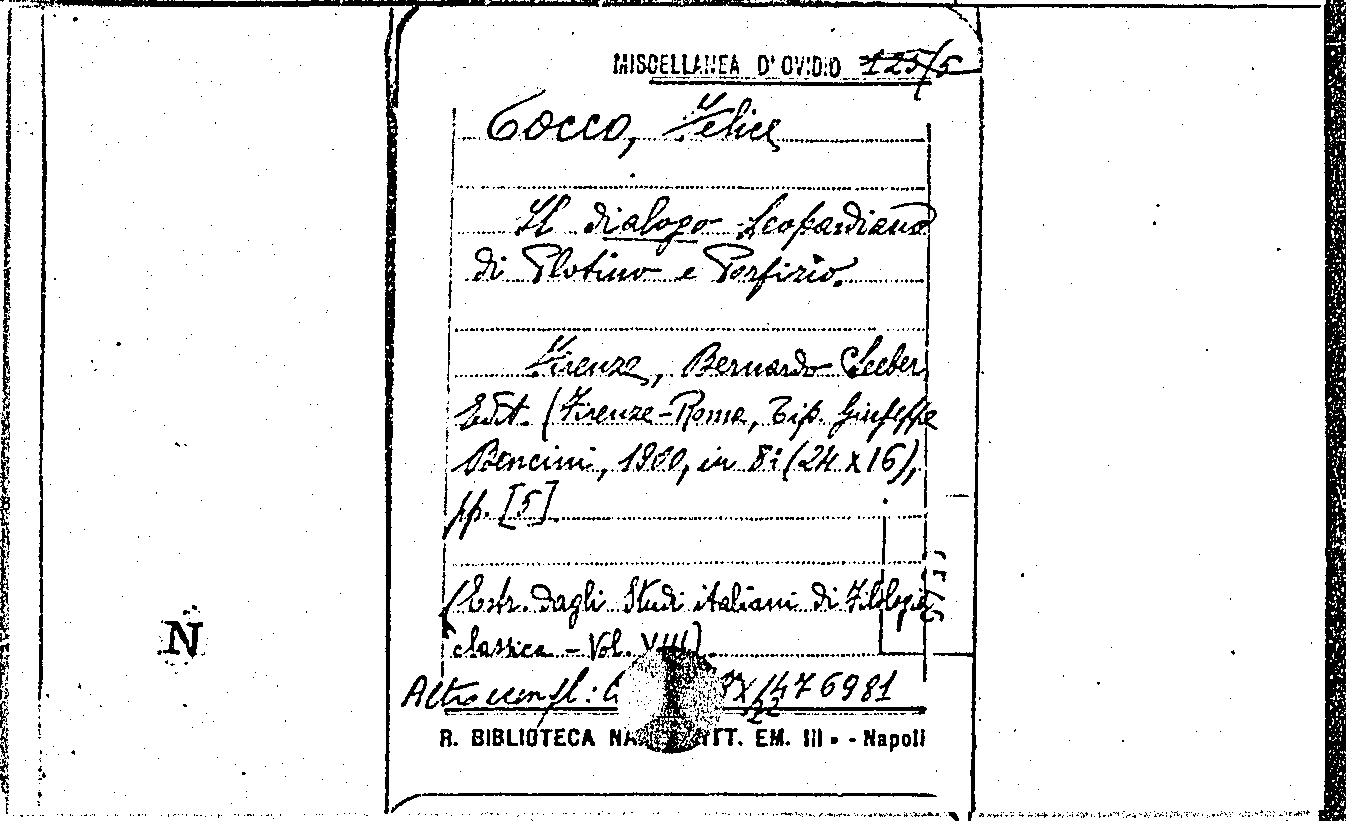 MISCELLANEA D'OVIDIO 125/5
Tocco, Felice
Il dialogo Leopardiano
di Plotino e Porfirio.
Firenze, Bernardo Seeber
Edit. (Firenze-Roma, Tip. Giuseppe
Bencini, 1900, in 8º (24 x 16),
pp. [5].
(Estr. dagli Studi italiani di Filologia
classica - Vol. VIII).
Altro esempl:
476981
R. BIBLIOTECA EM. III - - Napoli
N